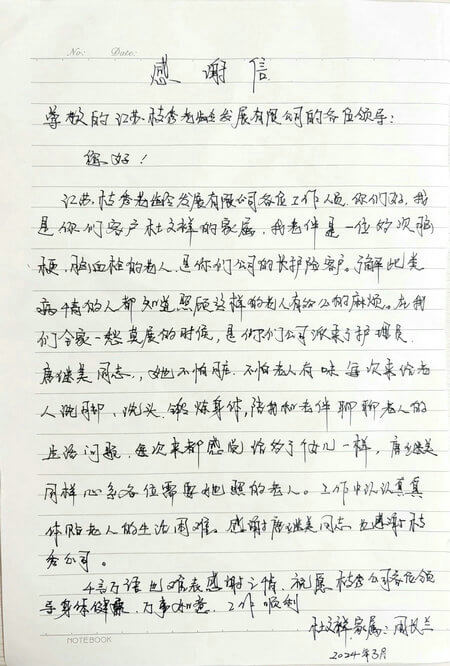 No:　Date:
感 谢 信
尊敬的江苏桂秀老龄产业发展有限公司的各位领导:
您好!
江苏桂秀老龄产业发展有限公司各位工作人员,你们好,我
是你们客户杜文祥的家属,我老伴是一位多次脑
梗,脑血栓的老人,是你们公司的长护险客户。了解此类
病情的人都知道照顾这样的老人有多么的麻烦。在我
们全家一愁莫展的时候,是你们公司派来了护理员
唐继美同志,她不怕脏、不怕老人有味每次来给老
人洗脚、洗头、锻炼身体,陪我和老伴聊聊老人的
生活问题,每次来都感觉给多了个女儿一样,唐继美
同样心系各位需要她照的老人。工作中认认真真
体贴老人的生活困难。感谢唐继美同志也感谢桂
秀公司。
千言万语也难表感谢之情,祝愿桂秀公司各位领
导身体健康,万事如意,工作顺利
杜文祥家属:周长兰
2024年3月
NOTEBOOK